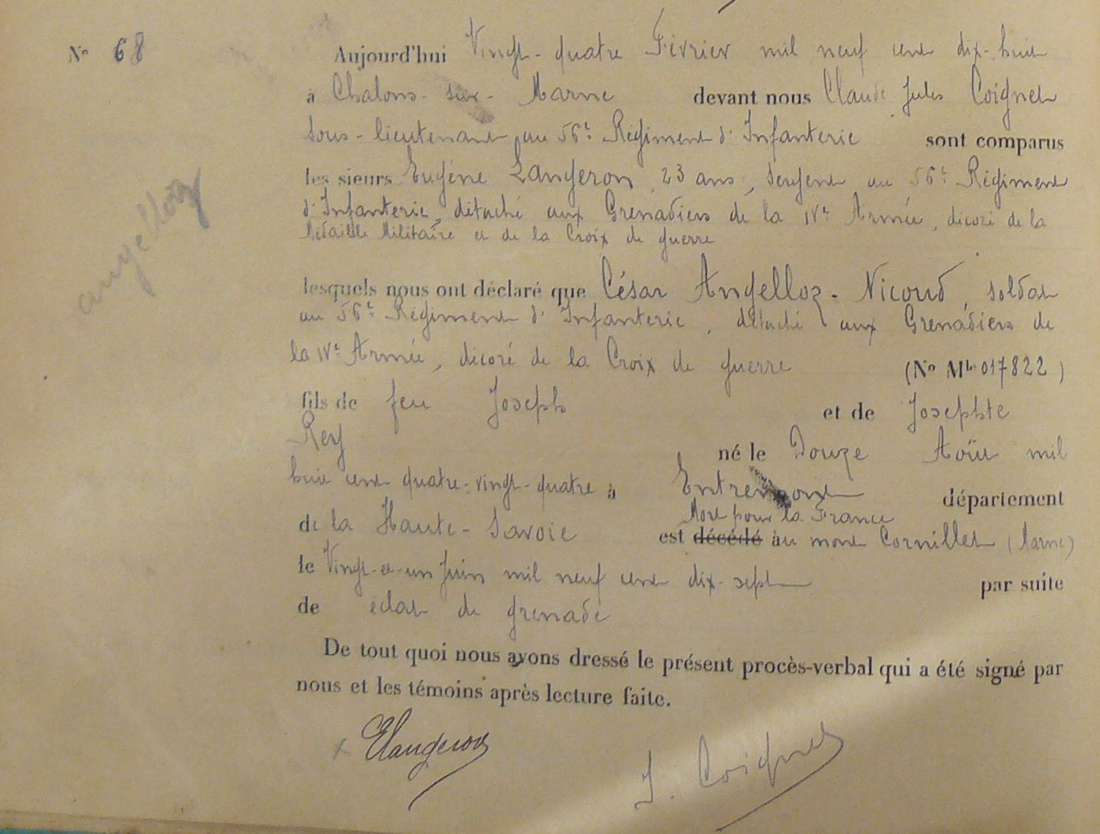 N° 68
Aujourd'hui Vingt-quatre Février mil neuf cent dix-huit
à Chalons-sur-Marne devant nous Claude Jules Coignet
Sous-lieutenant au 56e Régiment d'Infanterie sont comparus
les sieurs Eugène Langeron, 23 ans, Sergent au 56e Régiment
d'Infanterie, détaché aux Grenadiers de la IVe Armée, décoré de la
Médaille Militaire et de la Croix de guerre
angelloz
lesquels nous ont déclaré que César Angelloz-Nicoud, soldat
au 56e Régiment d'Infanterie, détaché aux Grenadiers de
la IVe Armée, décoré de la Croix de guerre (N° Mle 017822)
fils de feu Joseph et de Josephte
Rey né le Douze Août mil
huit cent quatre-vingt-quatre à Entremont département
Mort pour la France
de la Haute-Savoie est décédé au mont Cornillet (Marne)
le Vingt-et-un Juin mil neuf cent dix-sept par suite
de éclat de grenade
De tout quoi nous avons dressé le présent procès-verbal qui a été signé par
nous et les témoins après lecture faite.
x ELangeron
J. Coignet